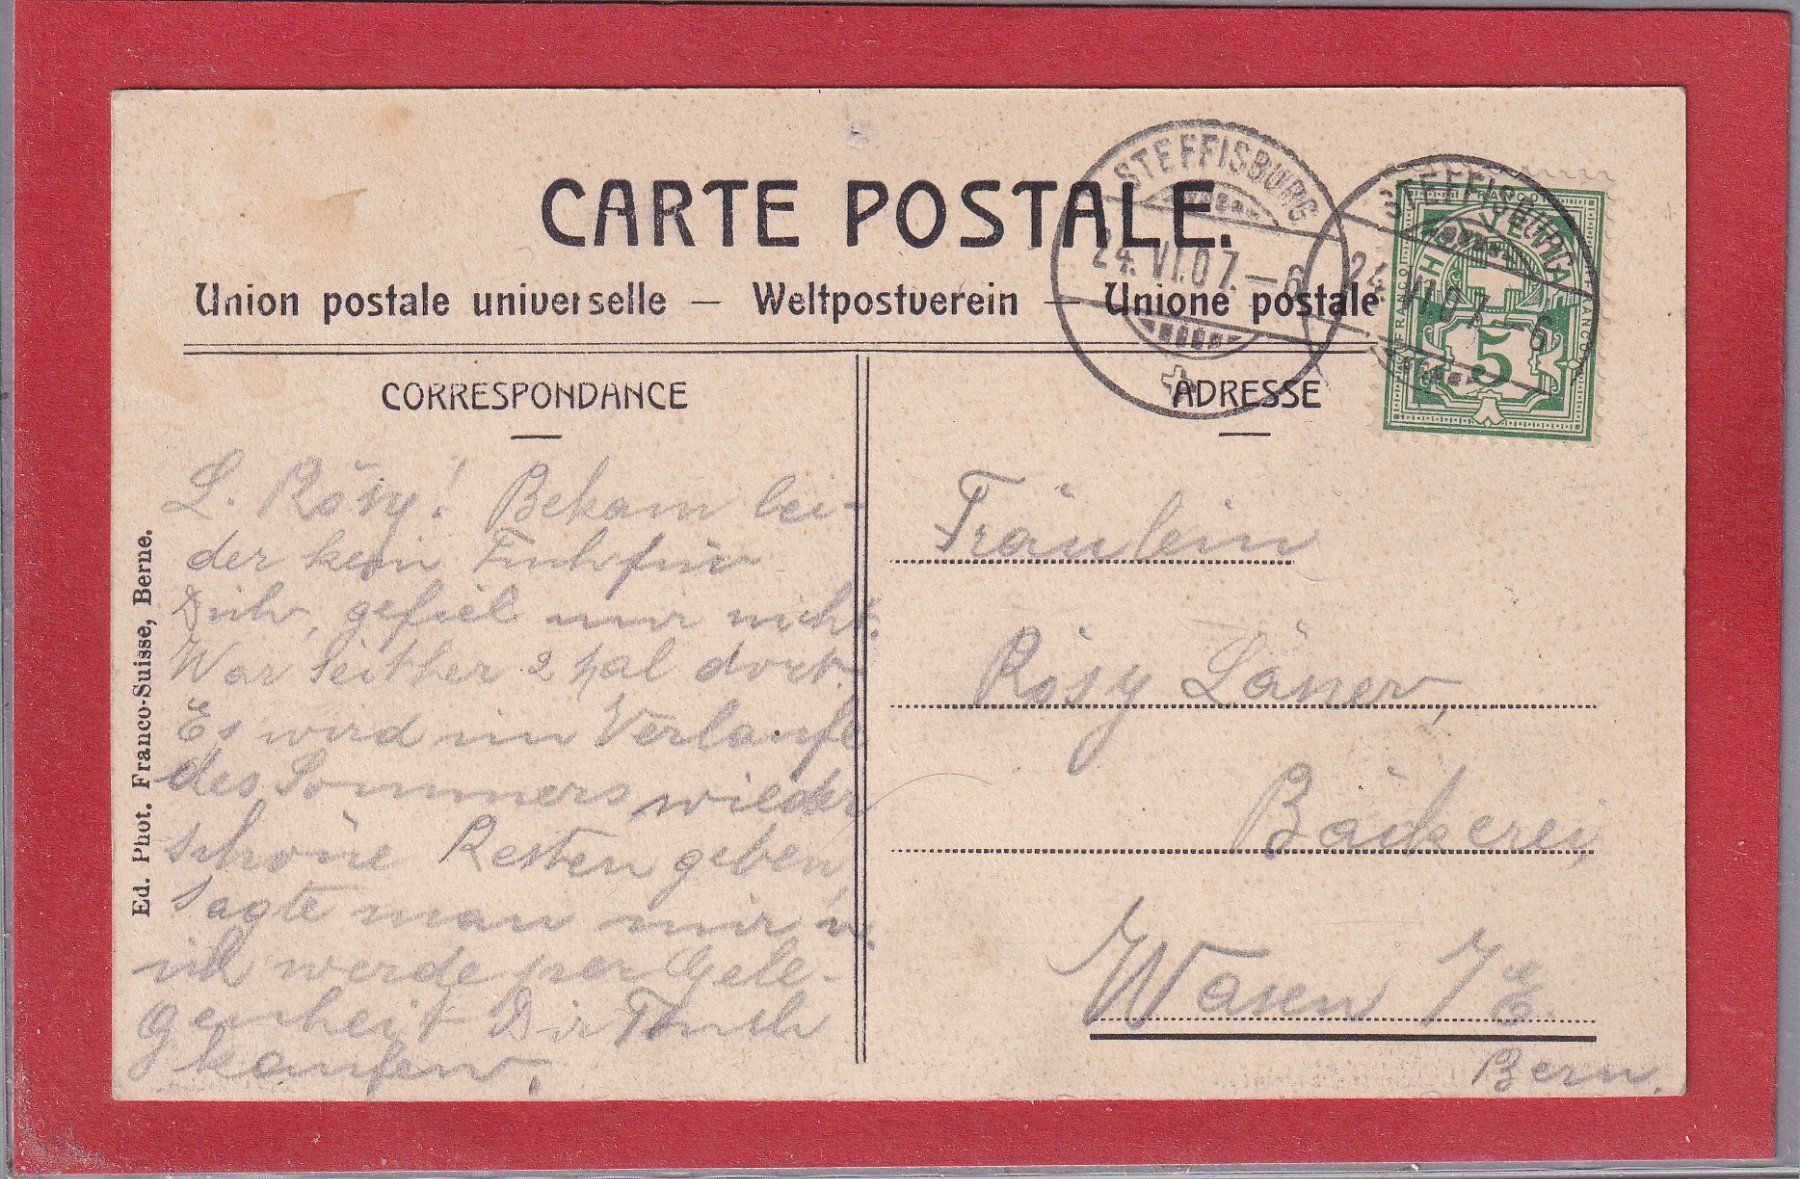 CARTE POSTALE.
Union postale universelle — Weltpostverein — Unione postale
STEFFISBURG
24.VI.07.–6
STEFFISBURG
24.VI.07.–6
HELVETIA
FRANCO
FRANCO
5
CORRESPONDANCE
L. Rösy! Bekam lei-
der kein für
gefiel mir nicht.
War seither 2 Mal dort.
Es wird im Verlaufe
des Sommers wieder
schöne Resten geben,
sagte man mir u.
ich werde per Gele-
genheit Dir
kaufen.
ADRESSE
Fräulein
Rösy Läner,
Bäckerei,
Wasen i/E.
Bern.
Ed. Phot. Franco-Suisse, Berne.